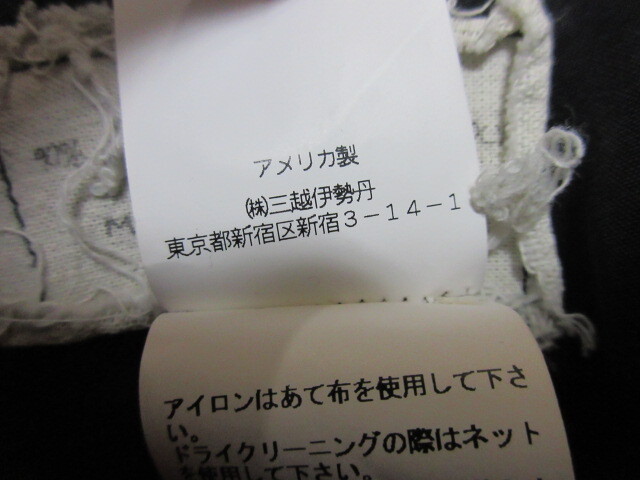 アメリカ製
㈱三越伊勢丹
東京都新宿区新宿３－１４－１
アイロンはあて布を使用して下さ
い。
ドライクリーニングの際はネット
を使用して下さい。